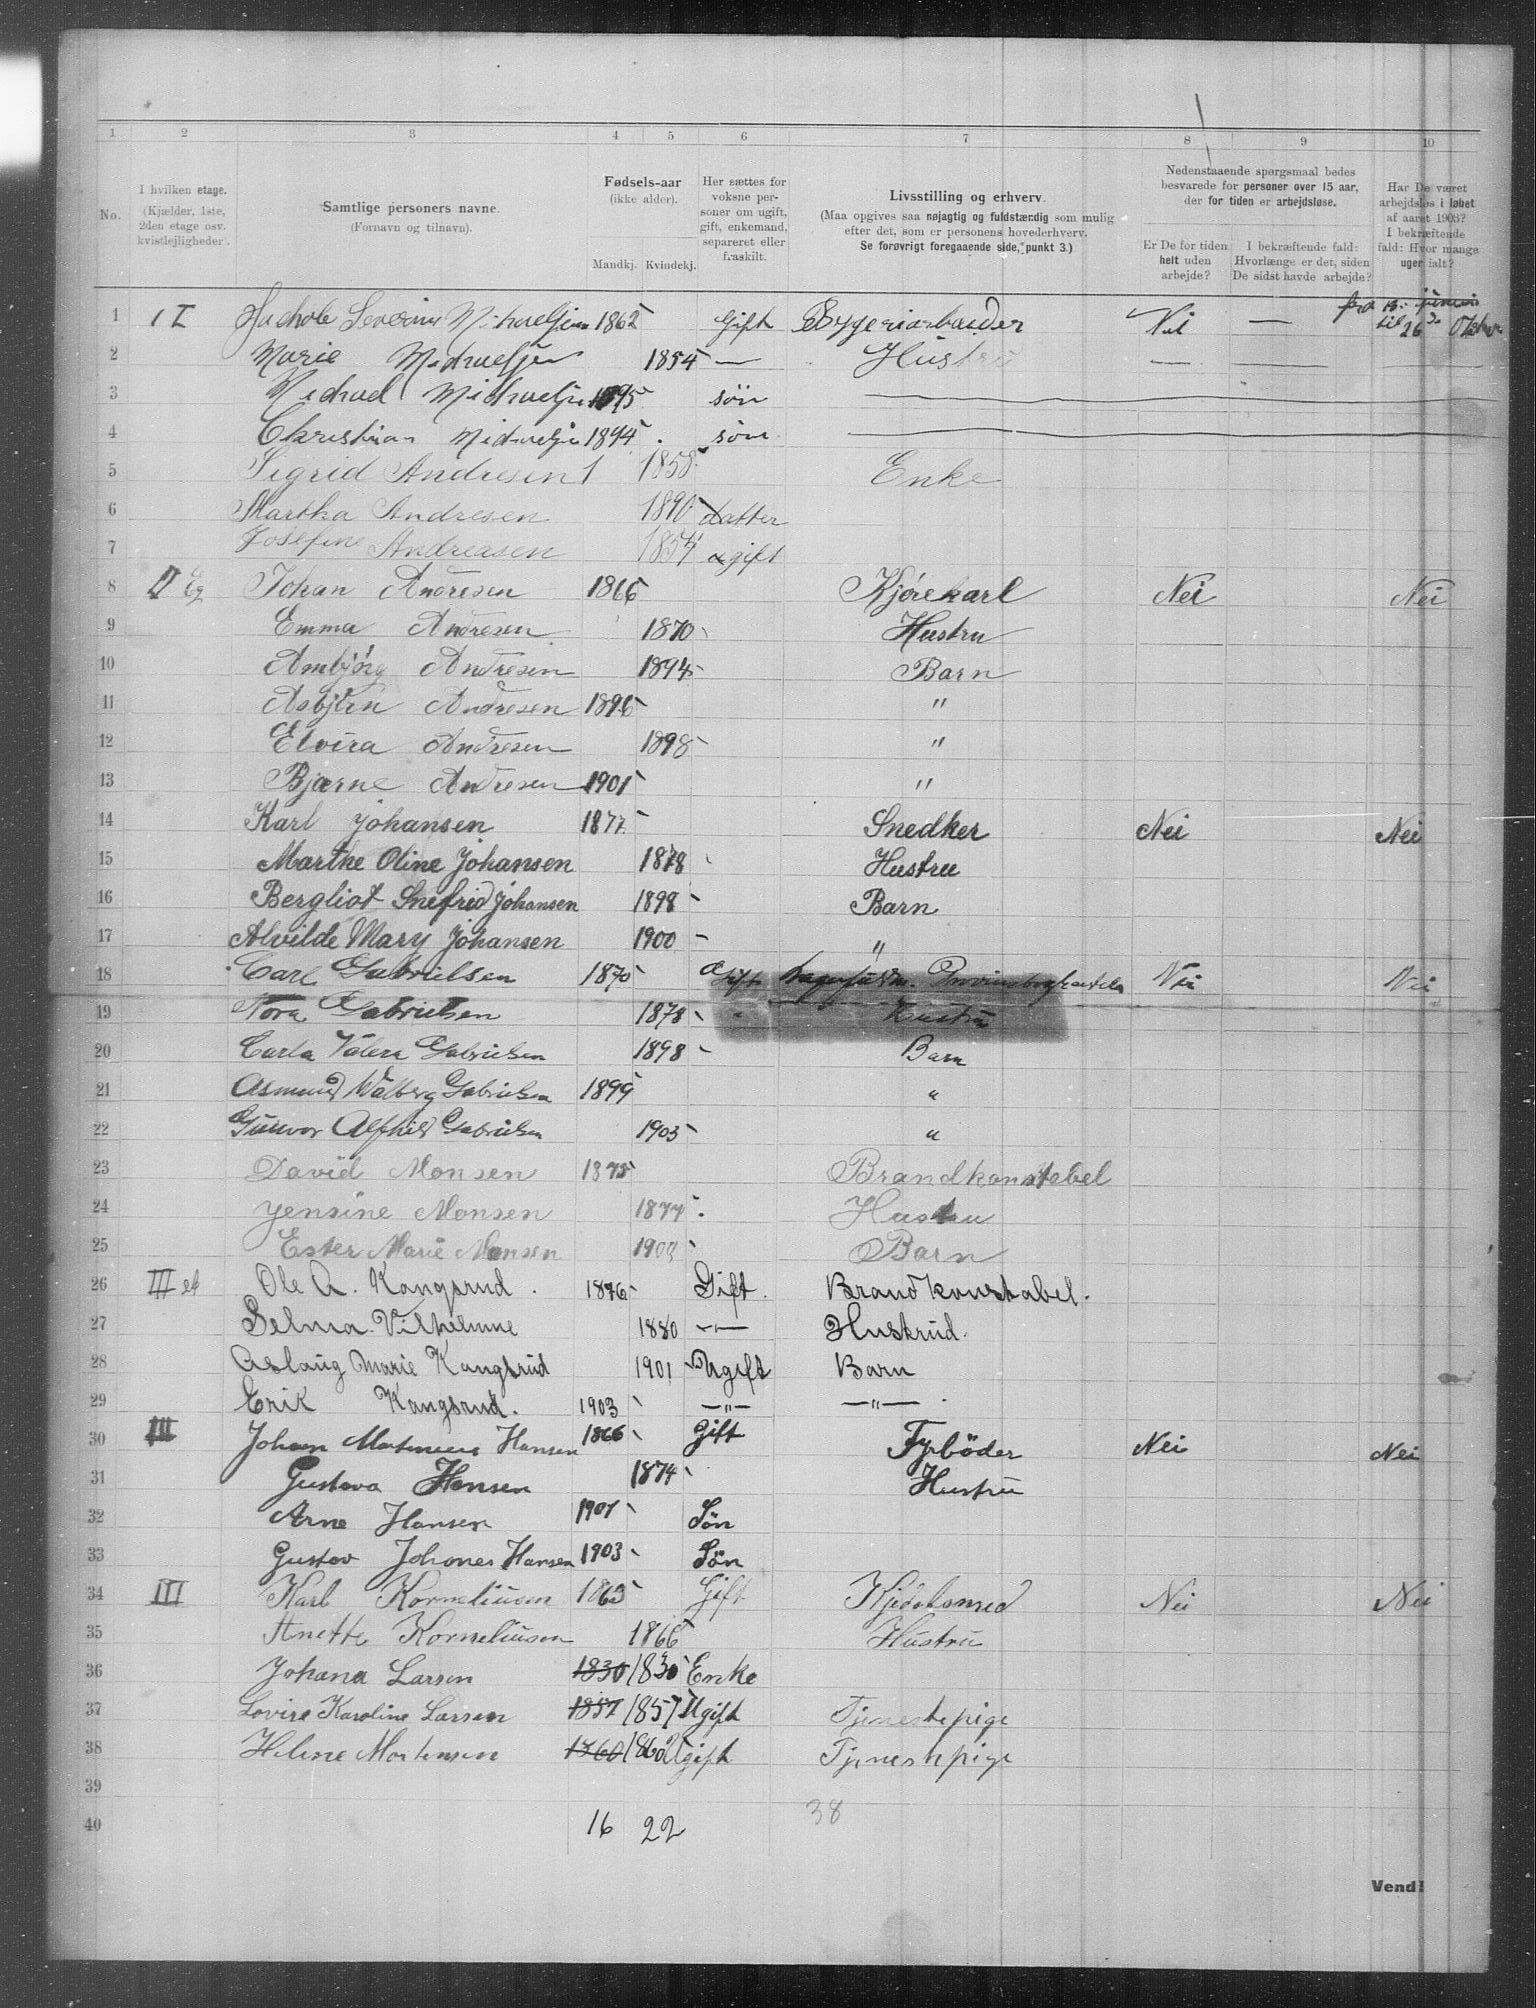 1 2 3 4 5 6 7 8 9 10
No. I hvilken etage. (Kjælder, 1ste, 2den etage osv. kvistleiligheder). Samtlige personers navne. (Fornavn og tilnavn). Fødsels-aar (ikke alder). Mandkj. Kvindekj. Her sættes for voksne personer om ugift, gift, enkemand, separeret eller fraskilt. Livsstilling og erhverv. (Maa opgives saa nøjagtig og fuldstændig som mulig efter det, som er personens hovederhverv. Se forøvrigt foregaaende side, punkt 3.) Nedenstaaende spørgsmaal bedes besvarede for personer over 15 aar, der for tiden er arbejdsløse. Er De for tiden helt uden arbejde? I bekræftende fald: Hvorlænge er det, siden De sidst havde arbejde? Har De været arbejdsløs i løbet af aaret 1903? I bekræftende fald: Hvor mange uger ialt?
1 I Severin 1862 Gift Nei — fra til 26
2 Marie 1854 — Hustru — — —
3 1895 søn
4 Christian 1894 søn
5 Sigrid Andresen 1 1858 Enke
6 Martha Andresen 1890 datter
7 Josefine Andreasen 1854 ugift
8 II Eg Johan Andresen 1866 Kjørekarl Nei Nei
9 Emma Andresen 1870 Hustru
10 Ambjörg Andresen 1894 Barn
11 Asbjörn Andresen 1896 "
12 Elvira Andresen 1898 "
13 Bjarne Andresen 1901 "
14 Karl Johansen 1877 Snedker Nei Nei
15 Marthe Oline Johansen 1878 Hustru
16 Bergliot Snefrid Johansen 1898 Barn
17 Alvilde Mary Johansen 1900 "
18 Carl Gabrielsen 1870 Gift Nei Nei
19 Nora Gabrielsen 1878 " Hustru
20 Carla Valera Gabrielsen 1898 Barn
21 Asmund Walberg Gabrielsen 1899 "
22 Gunvor Alfhild Gabrielsen 1903 "
23 David Monsen 1875 Brandkonstabel
24 Jensine Monsen 1877 Hustru
25 Ester Marie Monsen 1903 Barn
26 III Ole A. Kangsrud. 1876 Gift. Brandkonstabel.
27 Selma Vilhelmine 1880 —"— Hustrud.
28 Aslaug Marie Kangsrud 1901 Ugift Barn
29 Erik Kangsrud. 1903 —"— —"—
30 III Johan Hansen 1866 Gift Fyrböder Nei Nei
31 Gustava Hansen 1874 Hustru
32 Arne Hansen 1901 Sön
33 Gustav Johanes Hansen 1903 Sön
34 III Karl Korneliusen 1863 Gift Nei Nei
35 Anette Korneliusen 1866 Hustru
36 Johana Larsen 1830 1830 Enke
37 Lovise Karoline Larsen 1857 1857 Ugift Tjenestepige
38 Helene Mortensen 1860 1860 Ugift Tjenestepige
39
40 16 22 38
Vend!